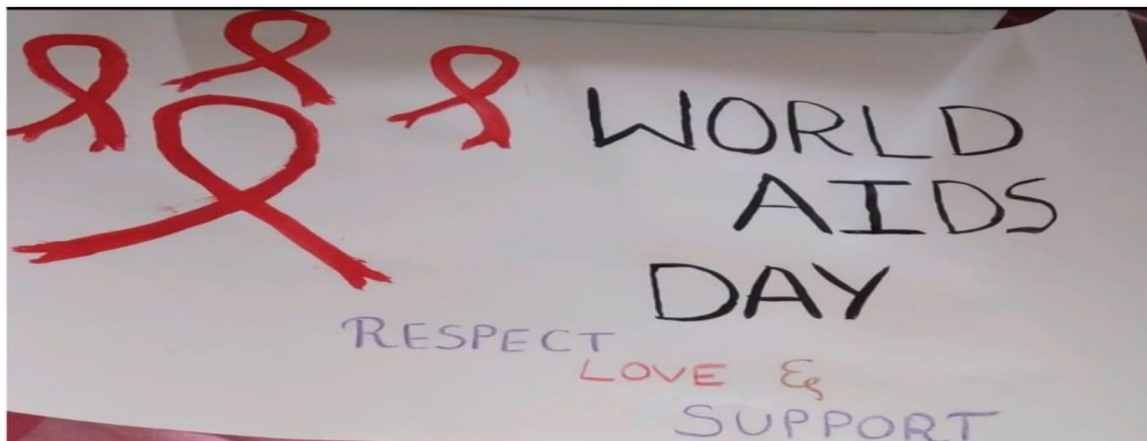 WORLD
AIDS
DAY
RESPECT
LOVE &
SUPPORT